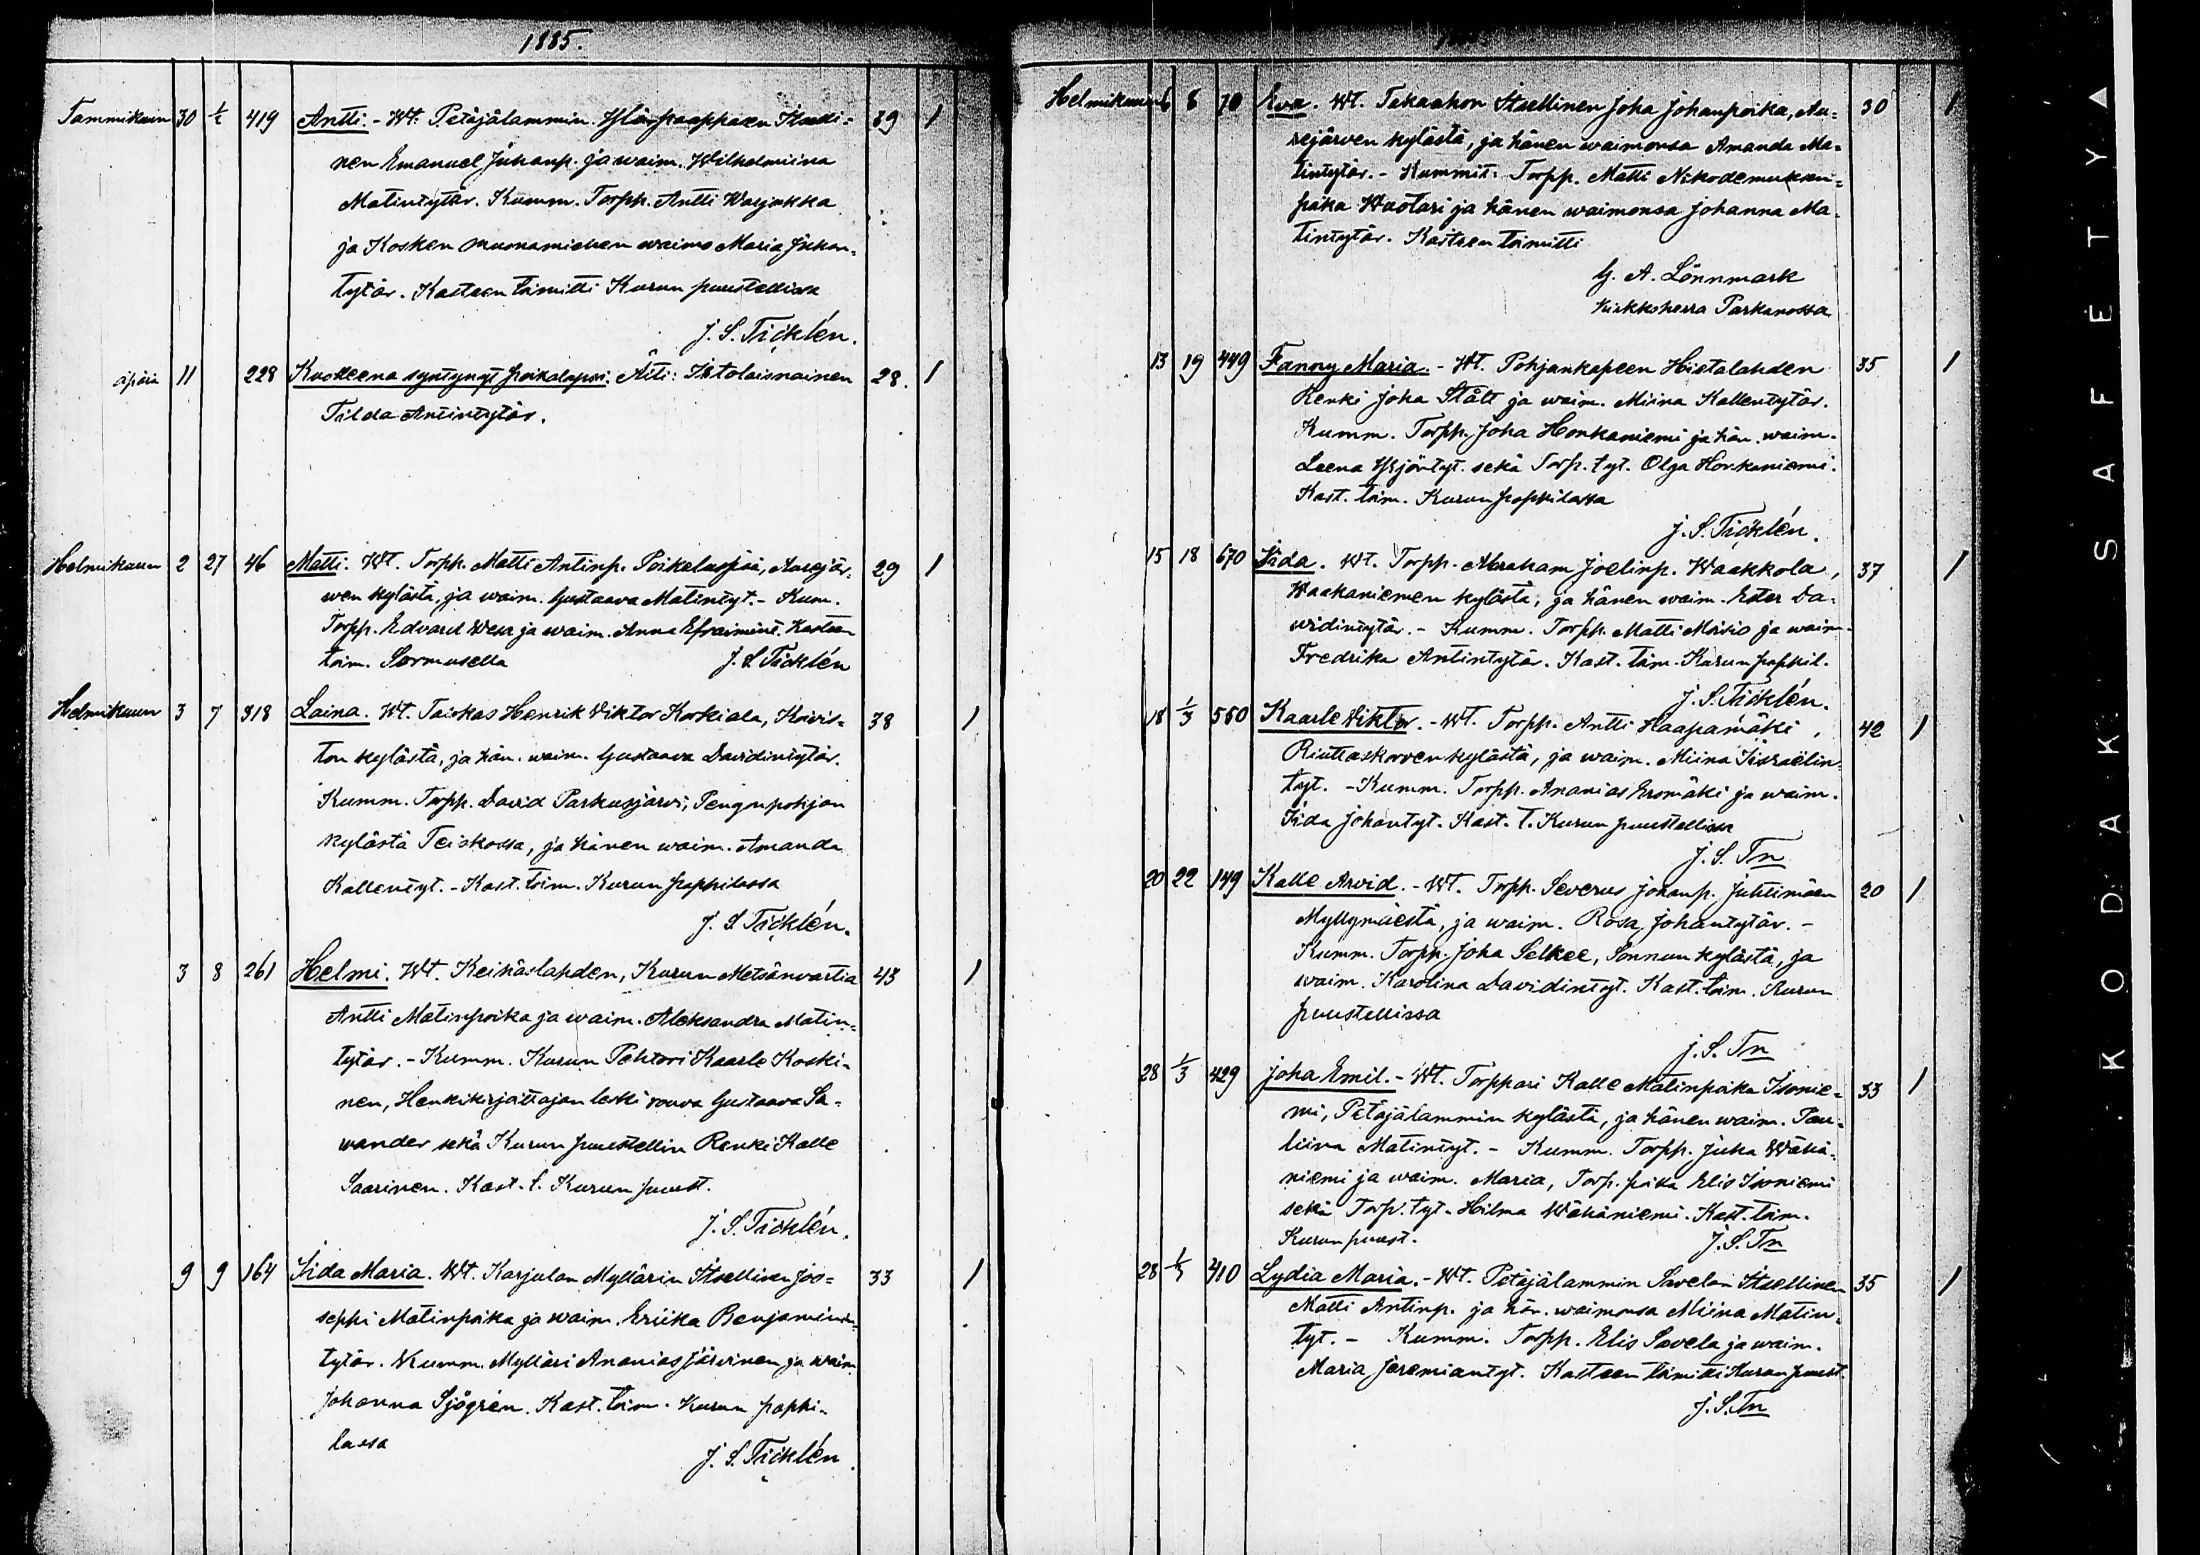 1885.
Tammikuun 30 1/2 419 Antti. - Wt. Petäjälammin Yläspaappasen Itselli= 39 1
nen Emanuel Juhanp. ja waim. Wilhelmiina
Matintytär. Kumm. Torpp. Antti Warjakka
ja Kosken muonamiehen waimo Maria Juhan-
tytär. Kasteen toimitti Kurun puustellissa
J. S. Ticklén.
äpärä 11 228 Kuolleena syntynyt poikalapsi. Äiti: Istolaisnainen 28. 1
Tilda Antintytär.
Helmikuun 2 27 46 Matti. Wt. Torpp. Matti Antinp. Poikeluspää, Aurejär- 29 1
wen kylästä, ja waim. Gustaava Matintyt. - Kum.
Torpp. Edvard Wesa ja waim. Anna Efraimint. Kasteen
toim. Sormusella J. S. Ticklén
Helmikuun 3 7 318 Laina. Wt. Taiskas Henrik Viktor Korkiala, Koivis- 38 1
ton kylästä, ja hän. waim. Gustaava Davidintytär.
Kumm. Torpp. David Parkusjärvi, Pengonpohjan
kylästä Teiskossa, ja hänen waim. Amanda
Kallentyt. - Kast. toim. Kurun pappilassa
J. S Ticklén.
3 8 261 Helmi. Wt. Keihäslahden, Kurun Metsänvartia 43 1
Antti Matinpoika ja waim. Aleksandra Matin-
tytär. - Kumm. Kurun Pehtori Kaarle Koski-
nen, Henkikirjoittajan leski rouva Gustaava Sa-
wander sekä Kurun puustellin Renki Kalle
Saarinen. Kast. t. Kurun puust.
J. S. Ticklén.
9 9 164 Iida Maria. Wt. Karjulan Myllärin Itsellinen Joo= 33 1
seppi Matinpoika ja waim. Eriika Benjamin-
tytär. Kumm. Mylläri Ananias Järvinen ja waim
Johanna Sjögrén. Kast. toim. Kurun pappi-
lassa
J. S. Ticklén.
Helmikuun 6 8 70 Eva. Wt. Takaahon Itsellinen Joha Johanpoika, Au= 30 1
rejärven kylästä, ja hänen waimonsa Amanda Ma-
tintytär. - Kummit: Torpp. Matti Nikodemuksen=
poika Huotari ja hänen waimonsa Johanna Ma-
tintytär. Kasteen toimitti
G. A. Lönnmark
Kirkkoherra Parkanossa
13 19 449 Fanny Maria. - Wt. Pohjankapeen Hietalahden 35 1
Renki Joha Stålt ja waim. Miina Kallentytär.
Kumm. Torpp. Joha Honkaniemi ja hän. waim.
Leena Yrjöntyt. sekä Torp. tyt. Olga Honkaniemi.
Kast. toim. Kurun pappilassa
J. S. Ticklén.
15 18 670 Iida. Wt. Torpp. Abraham Joelinp. Waakkola, 37 1
Waakaniemen kylästä, ja hänen waim. Ester Da-
widintytär. - Kumm. Torpp. Matti Moisio ja waim.
Fredrika Antintytär. Kast. toim. Kurun pappil.
J. S. Ticklén.
18 1/3 550 Kaarle Viktor. - Wt. Torpp. Antti Haapamäki, 42 1
Riuttaskorven kylästä, ja waim. Miina Iisraëlin-
tyt. - Kumm. Torpp. Ananias Eromäki ja waim.
Iida Johantyt. Kast. t. Kurun puustellissa
J. S. Tn
20 22 149 Kalle Arvid. - Wt. Torpp. Severus Johanp. Juhtimäen 20 1
Myllymäestä, ja waim. Rosa Johantytär. -
Kumm. Torpp. Joha Selkee, Sonnun kylästä, ja
waim. Karolina Davidintyt. Kast. toim. Kurun
puustellissa
J. S. Tn
28 1/3 429 Joha Emil. - Wt. Torppari Kalle Matinpoika Isonie- 33 1
mi, Petäjälammin kylästä, ja hänen waim. Pau-
liina Matintyt. - Kumm. Torpp. Juha Wähä-
niemi ja waim. Maria, Torp. poika Elis Isoniemi
sekä Torp. tyt. Hilma Wähäniemi. Kast. toim.
Kurun puust. J. S. Tn
28 1/3 410 Lydia Maria. - Wt. Petäjälammin Savelan Itsellinen 35 1
Matti Antinp. ja hän. waimonsa Miina Matin-
tyt. - Kumm. Torpp. Elis Savela ja waim.
Maria Jeremiantyt. Kasteen toimitti Kurun puust.
J. S. Tn
KODAK SAFETY